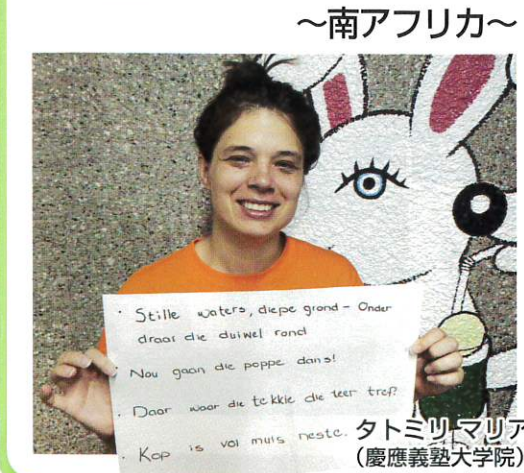 ～南アフリカ～
· Stille waters, diepe grond - Onder
draai die duiwel rond
· Nou gaan die poppe dans!
· Daar waar die tekkie die teer tref?
· Kop is vol muis neste.
タトミリ マリア
(慶應義塾大学院)